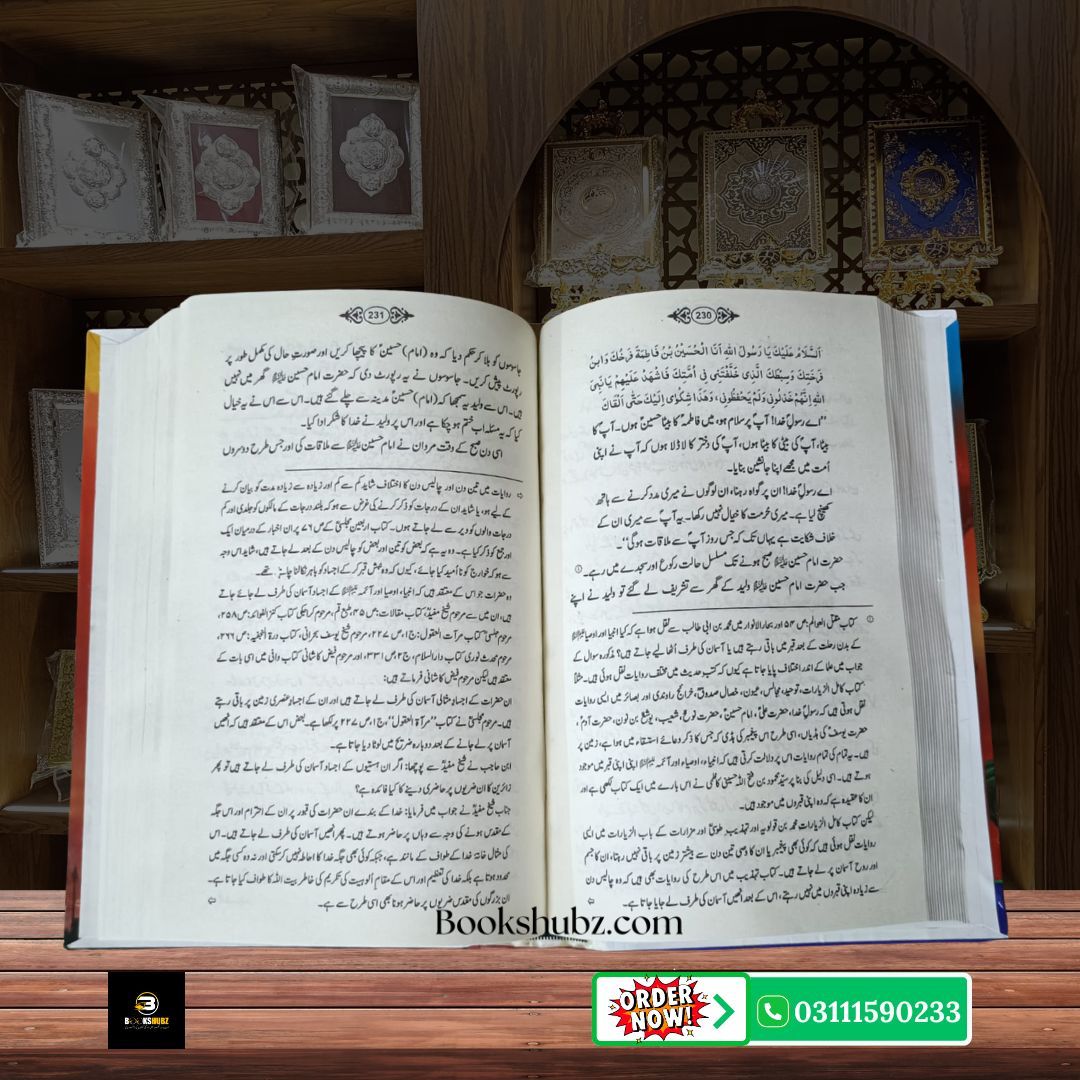 230
اَلسَّلَامُ عَلَيْكَ يَا رَسُولَ اللهِ اَنَا الْحُسَيْنُ بْنُ فَاطِمَةَ فَرْخُكَ وَابْنُ
فَرْخَتِكَ وَسِبْطُكَ الَّذِى خَلَّفْتَنِى فِى اُمَّتِكَ فَاشْهَدْ عَلَيْهِمْ يَا نَبِىَّ
اللهِ اِنَّهُمْ خَذَلُونِى وَلَمْ يَحْفَظُونِى، وَهٰذَا شِكْوَاىَ اِلَيْكَ حَتّٰى اَلْقَاكَ
”اے رسولِ خدا! آپ پر سلام ہو، میں فاطمہؑ کا بیٹا حسینؑ ہوں۔ آپؐ کا
بیٹا، آپ کی بیٹی کا بیٹا ہوں، آپؐ کی دختر کا لاڈلا ہوں کہ آپ نے اپنی
اُمت میں مجھے اپنا جانشین بنایا۔
اے رسولِ خدا! ان پر گواہ رہنا، ان لوگوں نے میری مدد کرنے سے ہاتھ
کھینچ لیا ہے۔ میری حُرمت کا خیال نہیں رکھا۔ یہ آپؐ سے میری ان کے
خلاف شکایت ہے یہاں تک کہ جس روز آپؐ سے ملاقات ہوگی“۔
حضرت امام حسین علیہ السلام صبح ہونے تک مسلسل حالت رکوع اور سجدے میں رہے۔ ①
جب حضرت امام حسین علیہ السلام ولید کے گھر سے تشریف لے گئے تو ولید نے اپنے
① کتاب مقتل العوالم: ص ۵۴ اور بحار الانوار میں محمد بن ابی طالب سے نقل ہوا ہے کہ کیا انبیا اور اوصیا
کے بدن رحلت کے بعد قبر میں باقی رہتے ہیں یا آسمان کی طرف اُٹھا لیے جاتے ہیں؟ مذکورہ سوال کے
جواب میں علما کے اندر اختلاف پایا جاتا ہے کیوں کہ کتب حدیث میں مختلف روایات نقل ہوئی ہیں۔ مثلاً
کتاب کامل الزیارات، توحید، مجالس، عیون، خصال صدوق، خرائج راوندی اور بصائر میں ایسی روایات
نقل ہوئی ہیں کہ رسولِ خدا، حضرت علیؑ، امام حسینؑ، حضرت نوحؑ، شعیب، یوشع بن نون، حضرت آدمؑ،
حضرت یوسفؑ کی ہڈیاں، اسی طرح اس پیغمبر کی ہڈی کہ جس کا ذکر دعائے استسقاء میں ہوا ہے، زمین پر
ہیں۔ یہ تمام کی تمام روایات اس پر دلالت کرتی ہیں کہ انبیاء، اوصیاء اور آئمہ اپنی اپنی قبر میں موجود
ہوتے ہیں۔ اسی دلیل کی بنا پر سید محمود بن فتح اللہ الحسینی کاظمی نے اس بارے میں ایک کتاب لکھی ہے اور
ان کا عقیدہ ہے کہ وہ اپنی قبروں میں موجود ہیں۔
لیکن کتاب کامل الزیارات محمد بن قولویہ اور تہذیب طوسیؒ اور مزارات کے باب الزیارات میں ایسی
روایات نقل ہوئی ہیں کہ کوئی بھی پیغمبر یا ان کا وصی تین دن سے بیشتر زمین پر باقی نہیں رہتا، ان کا جسم
اور روح آسمان پر لے جاتے ہیں۔ کتاب تہذیب میں اس طرح کی روایات بھی ہیں کہ وہ چالیس دن
سے زیادہ اپنی قبروں میں نہیں رہتے، اس کے بعد انھیں آسمان کی طرف لے جایا جاتا ہے۔
231
جاسوسوں کو بلا کر حکم دیا کہ وہ (امام) حسینؑ کا پیچھا کریں اور صورتِ حال کی مکمل طور پر
رپورٹ پیش کریں۔ جاسوسوں نے یہ رپورٹ دی کہ حضرت امام حسین علیہ السلام گھر میں نہیں
ہیں۔ اس سے ولید یہ سمجھا کہ (امام) حسینؑ مدینہ سے چلے گئے ہیں۔ اس سے اس نے یہ خیال
کیا کہ یہ مسئلہ اب ختم ہو چکا ہے اور اس پر ولید نے خدا کا شکر ادا کیا۔
اسی دن صبح کے وقت مروان نے امام حسین علیہ السلام سے ملاقات کی اور جس طرح دوسروں
روایات میں تین دن اور چالیس دن کا اختلاف شاید کم سے کم اور زیادہ سے زیادہ مدت کو بیان کرنے
کے لیے ہو، یا شاید ان کے درجات کو ذکر کرنے کی غرض سے ہو کہ بلند درجات کے مالکوں کو جلدی اور کم
درجات والوں کو دیر سے لے جاتے ہوں۔ کتاب اربعین مجلسیؒ کے ص ۷۶ پر ان اخبار کے درمیان ایک
اور جمع کو ذکر کیا ہے۔ وہ یہ ہے کہ بعض کو تین اور بعض کو چالیس دن کے بعد لے جاتے ہیں، شاید اس وجہ
سے ہو کہ خوارج کو نا اُمید کیا جائے، کیوں کہ وہ نبش قبر کر کے اجساد کو باہر نکالنا چاہتے تھے۔
وہ حضرات جو اس کے معتقد ہیں کہ انبیا، اوصیا اور آئمہ کے اجساد آسمان کی طرف لے جائے جاتے
ہیں، ان میں سے مرحوم شیخ مفیدؒ، کتاب مقالات: ص ۴۵، طبع قم، مرحوم کراجکی کتاب کنز الفوائد: ص ۲۵۸،
مرحوم مجلسیؒ کتاب مرآت العقول: ج ۱، ص ۲۲۷، مرحوم شیخ یوسف بحرانی، کتاب درۃ النجفیہ: ص ۲۶۶،
مرحوم محدث نوری کتاب دار السلام، ج ۲، ص ۳۳۱، اور مرحوم فیض کاشانی کتاب وافی میں اسی بات کے
معتقد ہیں لیکن مرحوم فیض کاشانی فرماتے ہیں:
ان حضرات کے اجساد مثالی آسمان کی طرف لے جاتے ہیں اور ان کے اجساد عنصری زمین پر باقی رہتے
ہیں۔ مرحوم مجلسیؒ نے کتاب ”مرآۃ العقول“، ج ۱، ص ۲۲۷ پر لکھا ہے۔ بعض اس کے معتقد ہیں کہ انھیں
آسمان پر لے جانے کے بعد دوبارہ ضریح میں لوٹا دیا جاتا ہے۔
ابن حاجب نے شیخ مفیدؒ سے پوچھا: اگر ان ہستیوں کے اجساد آسمان کی طرف لے جاتے ہیں تو پھر
زائرین کا ان ضریحوں پر حاضری دینے کا کیا فائدہ ہے؟
جناب شیخ مفیدؒ نے جواب میں فرمایا: خدا کے بندے ان حضرات کی قبور پر ان کے احترام اور اس جگہ
کے مقدس ہونے کی وجہ سے وہاں پر حاضر ہوتے ہیں۔ پھر انھیں آسمان کی طرف لے جاتے ہیں۔ اس
کی مثال خانۂ خدا کے طواف کے مانند ہے، جبکہ کوئی بھی جگہ خدا کا احاطہ نہیں کر سکتی اور نہ وہ کسی جگہ میں
محدود ہوتا ہے بلکہ خدا کی تعظیم اور اس کے مقام اُلوہیت کی تکریم کی خاطر بیت اللہ کا طواف کیا جاتا ہے۔
ان بزرگوں کی مقدس ضریحوں پر حاضر ہونا بھی اسی طرح سے ہے۔
Bookshubz.com
BOOKSHUBZ
ORDER
NOW!
03111590233